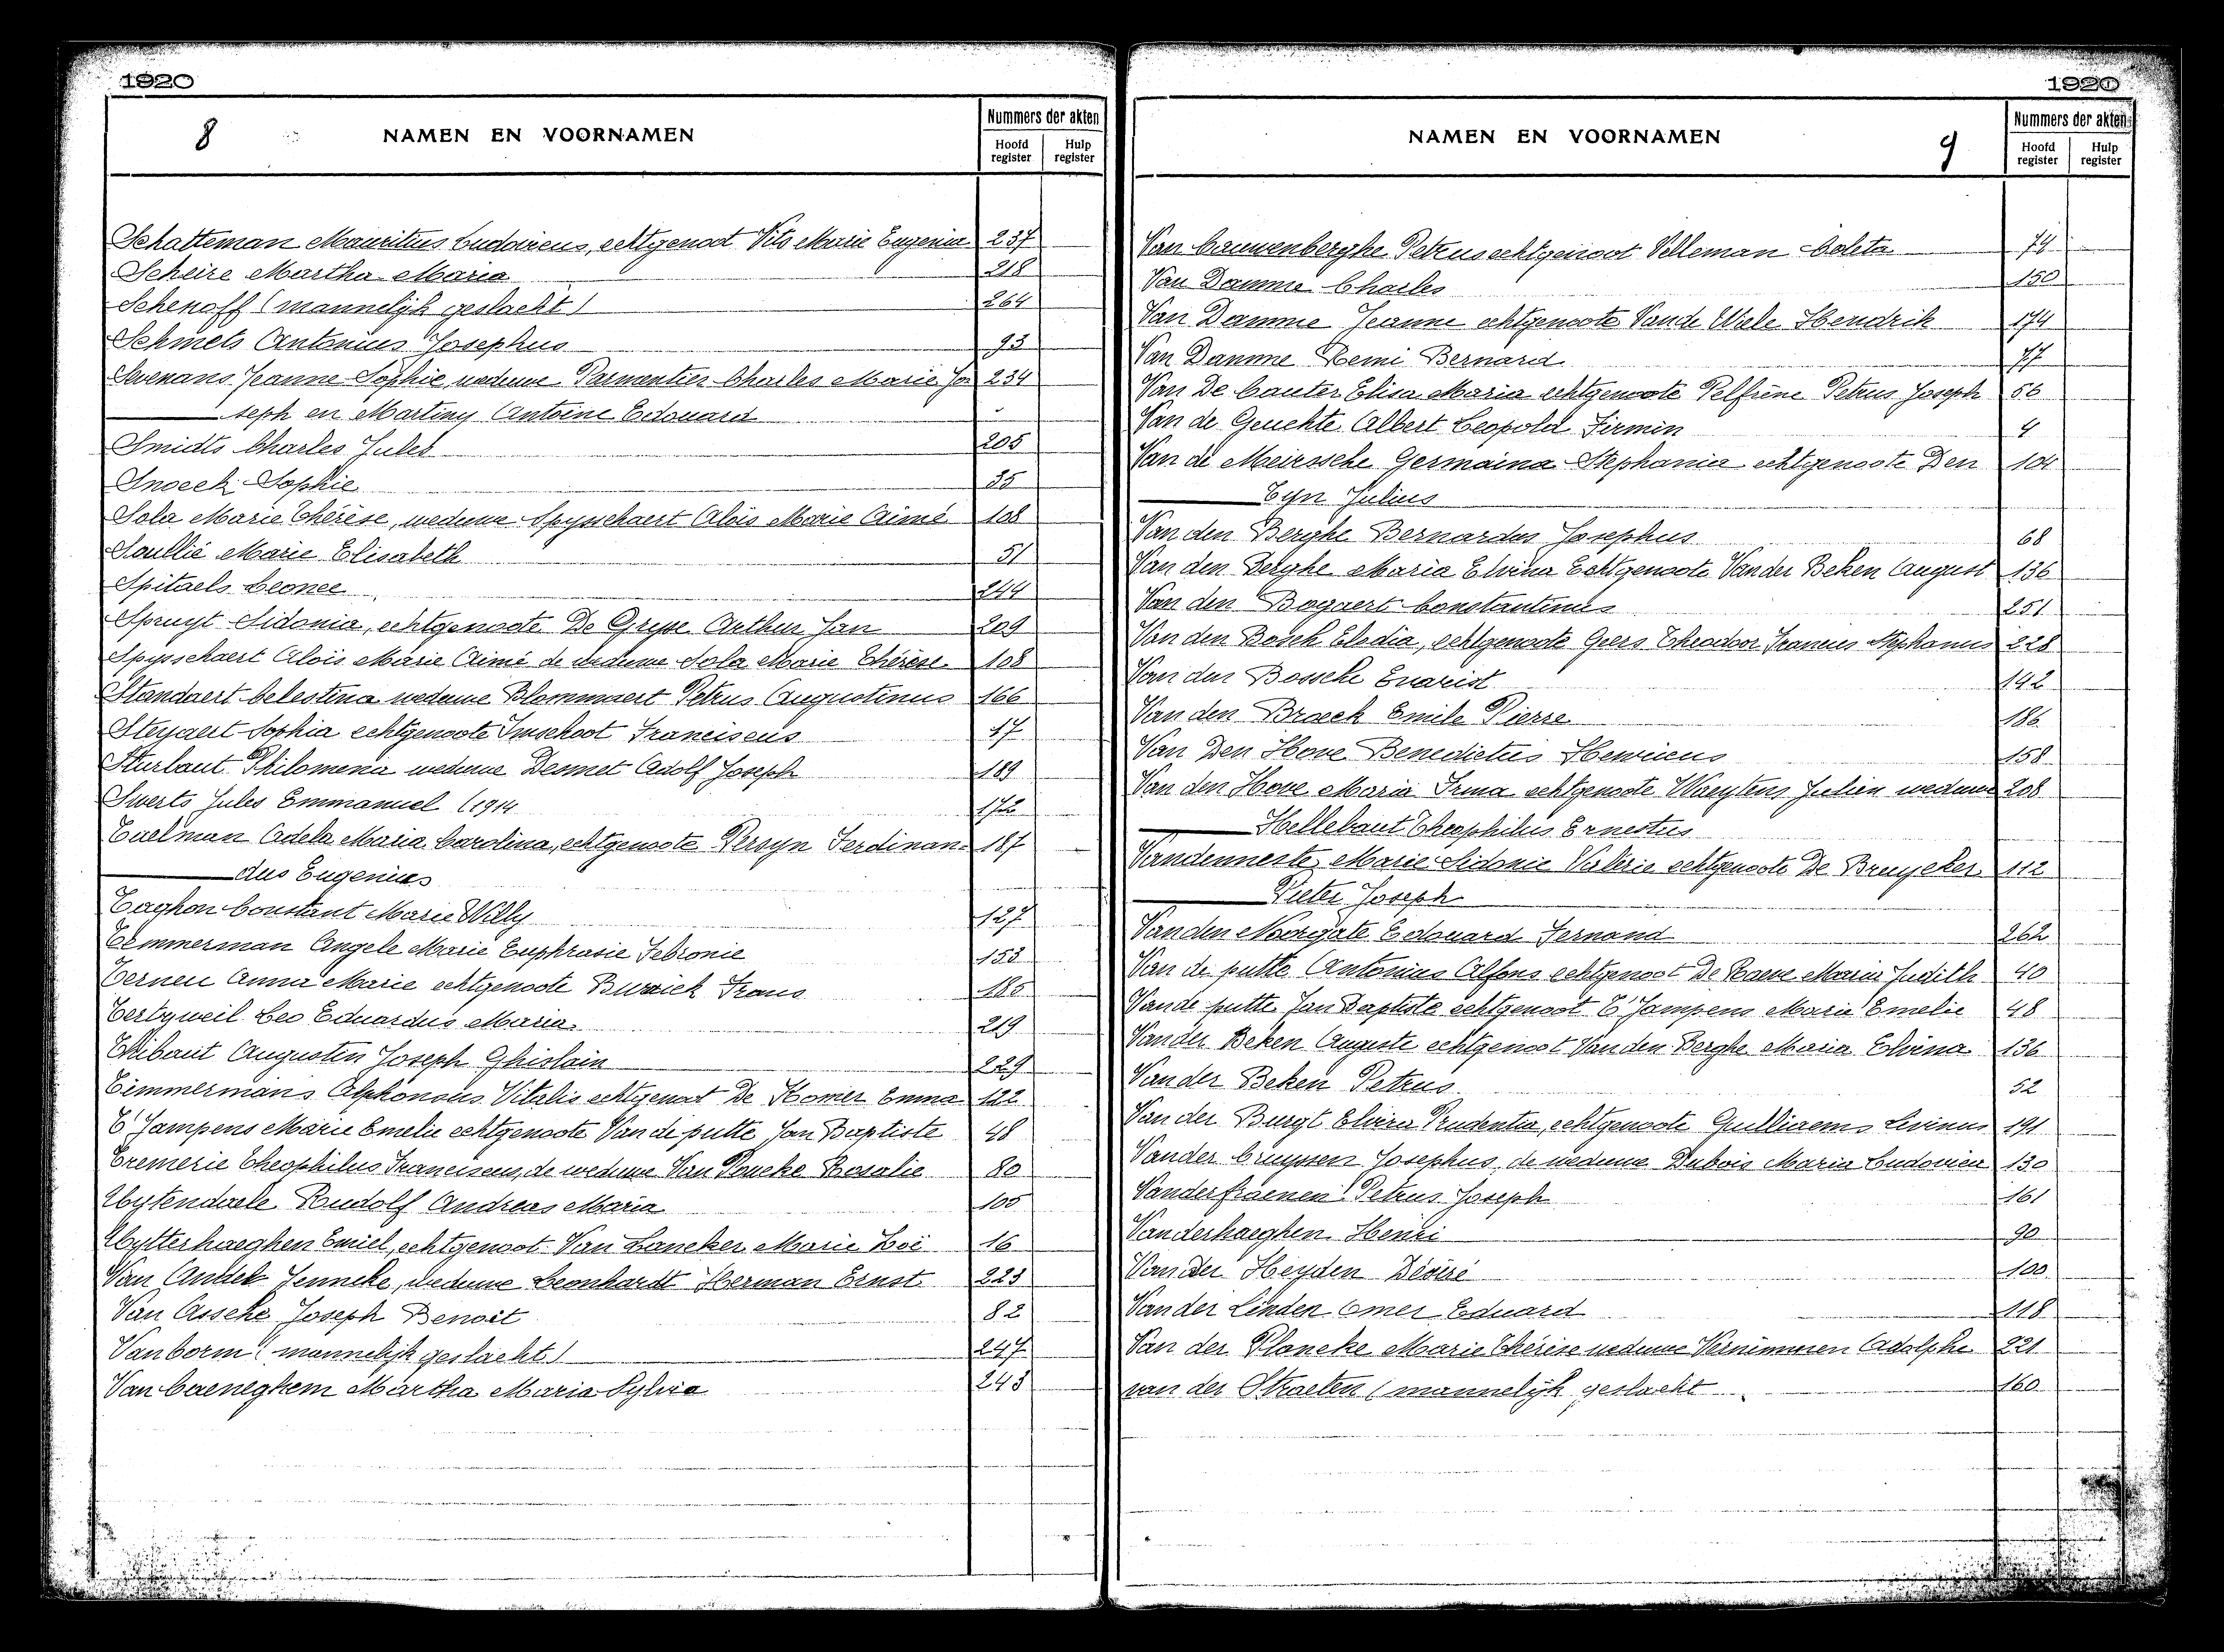 1920
8
NAMEN EN VOORNAMEN
Nummers der akten
Hoofd register
Hulp register
Schatteman Mauritius Ludovicus, echtgenoot Vits Marie Eugenie 237
Scheire Martha Maria 218
Schenoff (mannelijk geslacht) 264
Schmets Antonius Josephus 93
Jeanne Sophie, weduwe Parmentier Charles Marie Jo 234
seph en Martiny Antoine Edouard
Smidts Charles Jules 205
Snoeck Sophie 35
Sola Marie Thérèse, weduwe Spysschaert Aloïs Marie Aimé 108
Soullié Marie Elisabeth 51
Spitaels Leonce 244
Spruyt Sidonia, echtgenoote De Gryse Arthur Jan 209
Spysschaert Aloïs Marie Aimé de weduwe Sola Marie Thérèse 108
Standaert Celestina weduwe Blommaert Petrus Augustinus 166
Steyaert Sophia echtgenoote Imschoot Franciscus 17
Sturbaut Philomena weduwe Desmet Adolf Joseph 189
Swerts Jules Emmanuel (1914 172
Taelman Adela Maria Carolina, echtgenoote Persyn Ferdinan= 187
dus Eugenius
Taghon Constant Marie Willy 127
Temmerman Angele Marie Euphrasie Febronie 153
Terneu Anna Marie echtgenoote Burvick Frans 185
Tertzweil Leo Eduardus Maria 219
Thibaut Augustin Joseph Ghislain 229
Timmermans Alphonsus Vitalis echtgenoot De Komer Emma 122
T'Jampens Marie Emelie echtgenoote Van de putte Jan Baptiste 48
Tremerie Theophilus Franciscus, de weduwe Van Poucke Rosalie 80
Uytendaele Rudolf Andreas Maria 105
Uytterhaeghen Emiel, echtgenoot Van Lancker Marie Zoë 16
Van Andel Jenneke, weduwe Leonhardt Herman Ernst 223
Van Assche Joseph Benoit 82
Vanborm (mannelijk geslacht) 247
Van Caeneghem Martha Maria Sylvia 243
1920
NAMEN EN VOORNAMEN
9
Nummers der akten
Hoofd register
Hulp register
Van Cauwenberghe Petrus echtgenoot Velleman Coleta 74
Van Damme Charles 150
Van Damme Jeanne echtgenoote Van de Wiele Hendrik 174
Van Damme Remi Bernard 77
Van De Cauter Elisa Maria echtgenoote Pelfrène Petrus Joseph 56
Van de Geuchte Albert Leopold Firmin 4
Van de Meirssche Germaina Stephania echtgenoote Den 104
Tyn Julius
Van den Berghe Bernardus Josephus 68
Van den Berghe Maria Elvina Echtgenoote Van der Beken August 136
Van den Bogaert Constantinus 251
Van den Bosch Elodia, echtgenoote Geers Theodoor Francus Stephanus 228
Van den Bossche Evarist 142
Van den Broeck Emile Pierre 186
Van Den Hove Benedictus Henricus 158
Van den Hove Maria Irma echtgenoote Waeytens Julien weduwe 208
Hellebaut Theophilus Ernestus
Vandenneste Marie Sidonie Valérie echtgenoote De Bruycker 112
Pieter Joseph
Van den Noortgate Edouard Fernand 262
Van de putte Antonius Alfons echtgenoot De Raeve Maria Judith 40
Van de putte Jan Baptiste echtgenoot T'Jampens Marie Emelie 48
Van der Beken Auguste echtgenoot Van den Berghe Maria Elvina 136
Van der Beken Petrus 52
Van der Burgt Elvira Prudentia, echtgenoote Gulliaems Livinus 191
Van der Cruyssen Josephus, de weduwe Dubois Maria Ludovica 130
Vanderfraenen Petrus Joseph 161
Vanderhaeghen Henri 90
Van der Heyden Désiré 100
Van der Linden Omer Eduard 118
Van der Plancke Marie Thérèse weduwe Vernimmen Adolphe 221
van der Straeten (mannelijk geslacht 160